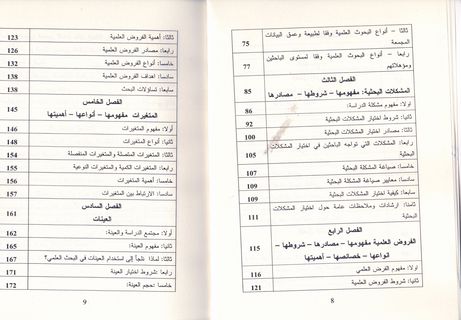 ثالثا – أنواع البحوث العلمية وفقا لطبيعة وعمق البيانات
المجمعة 75
رابعا – أنواع البحوث العلمية وفقا لمستوى الباحثين
ومؤهلاتهم 77
الفصل الثالث
المشكلات البحثية: مفهومها – شروطها – مصادرها 85
اولا: مفهوم مشكلة الدراسة: 86
ثانيا: شروط اختيار المشكلات البحثية 92
ثالثا: مصادر اختيار المشكلات البحثية 100
رابعا: المشكلات التي تواجه الباحثين في اختيار المشكلات
البحثية 105
خامسا: صياغة المشكلة البحثية 107
سادسا: معايير صياغة المشكلة البحثية 109
سابعا: كيفية اختيار المشكلات البحثية 109
ثامنا: ارشادات وملاحظات عامة حول اختيار المشكلات
البحثية 111
الفصل الرابع
الفروض العلمية مفهومها – مصادرها – شروطها –
انواعها – خصائصها – أهميتها 115
اولا: مفهوم الفرض العلمي 116
ثانيا: شروط الفروض العلمية 121
8
ثالثا: أهمية الفروض العلمية 123
رابعا: مصادر الفروض العلمية 126
خامسا: أنواع الفروض العلمية 132
سادسا: اهداف الفروض العلمية 138
سابعا: تساؤلات البحث 138
الفصل الخامس
المتغيرات مفهومها – أنواعها – أهميتها 145
أولا: مفهوم المتغيرات 146
ثانيا: أنواع المتغيرات 148
ثالثا: المتغيرات المتصلة والمتغيرات المنفصلة 154
رابعا: المتغيرات الكمية والمتغيرات النوعية 155
خامسا: أهمية المتغيرات 156
سادسا: الارتباط بين المتغيرات 157
الفصل السادس
العينات 161
أولا: مجتمع الدراسة والعينة: 162
ثانيا: مفهوم العينة: 165
ثالثا: لماذا نلجأ إلى استخدام العينات في البحث العلمي؟ 167
رابعا: شروط اختيار العينة: 171
خامسا: حجم العينة: 172
9